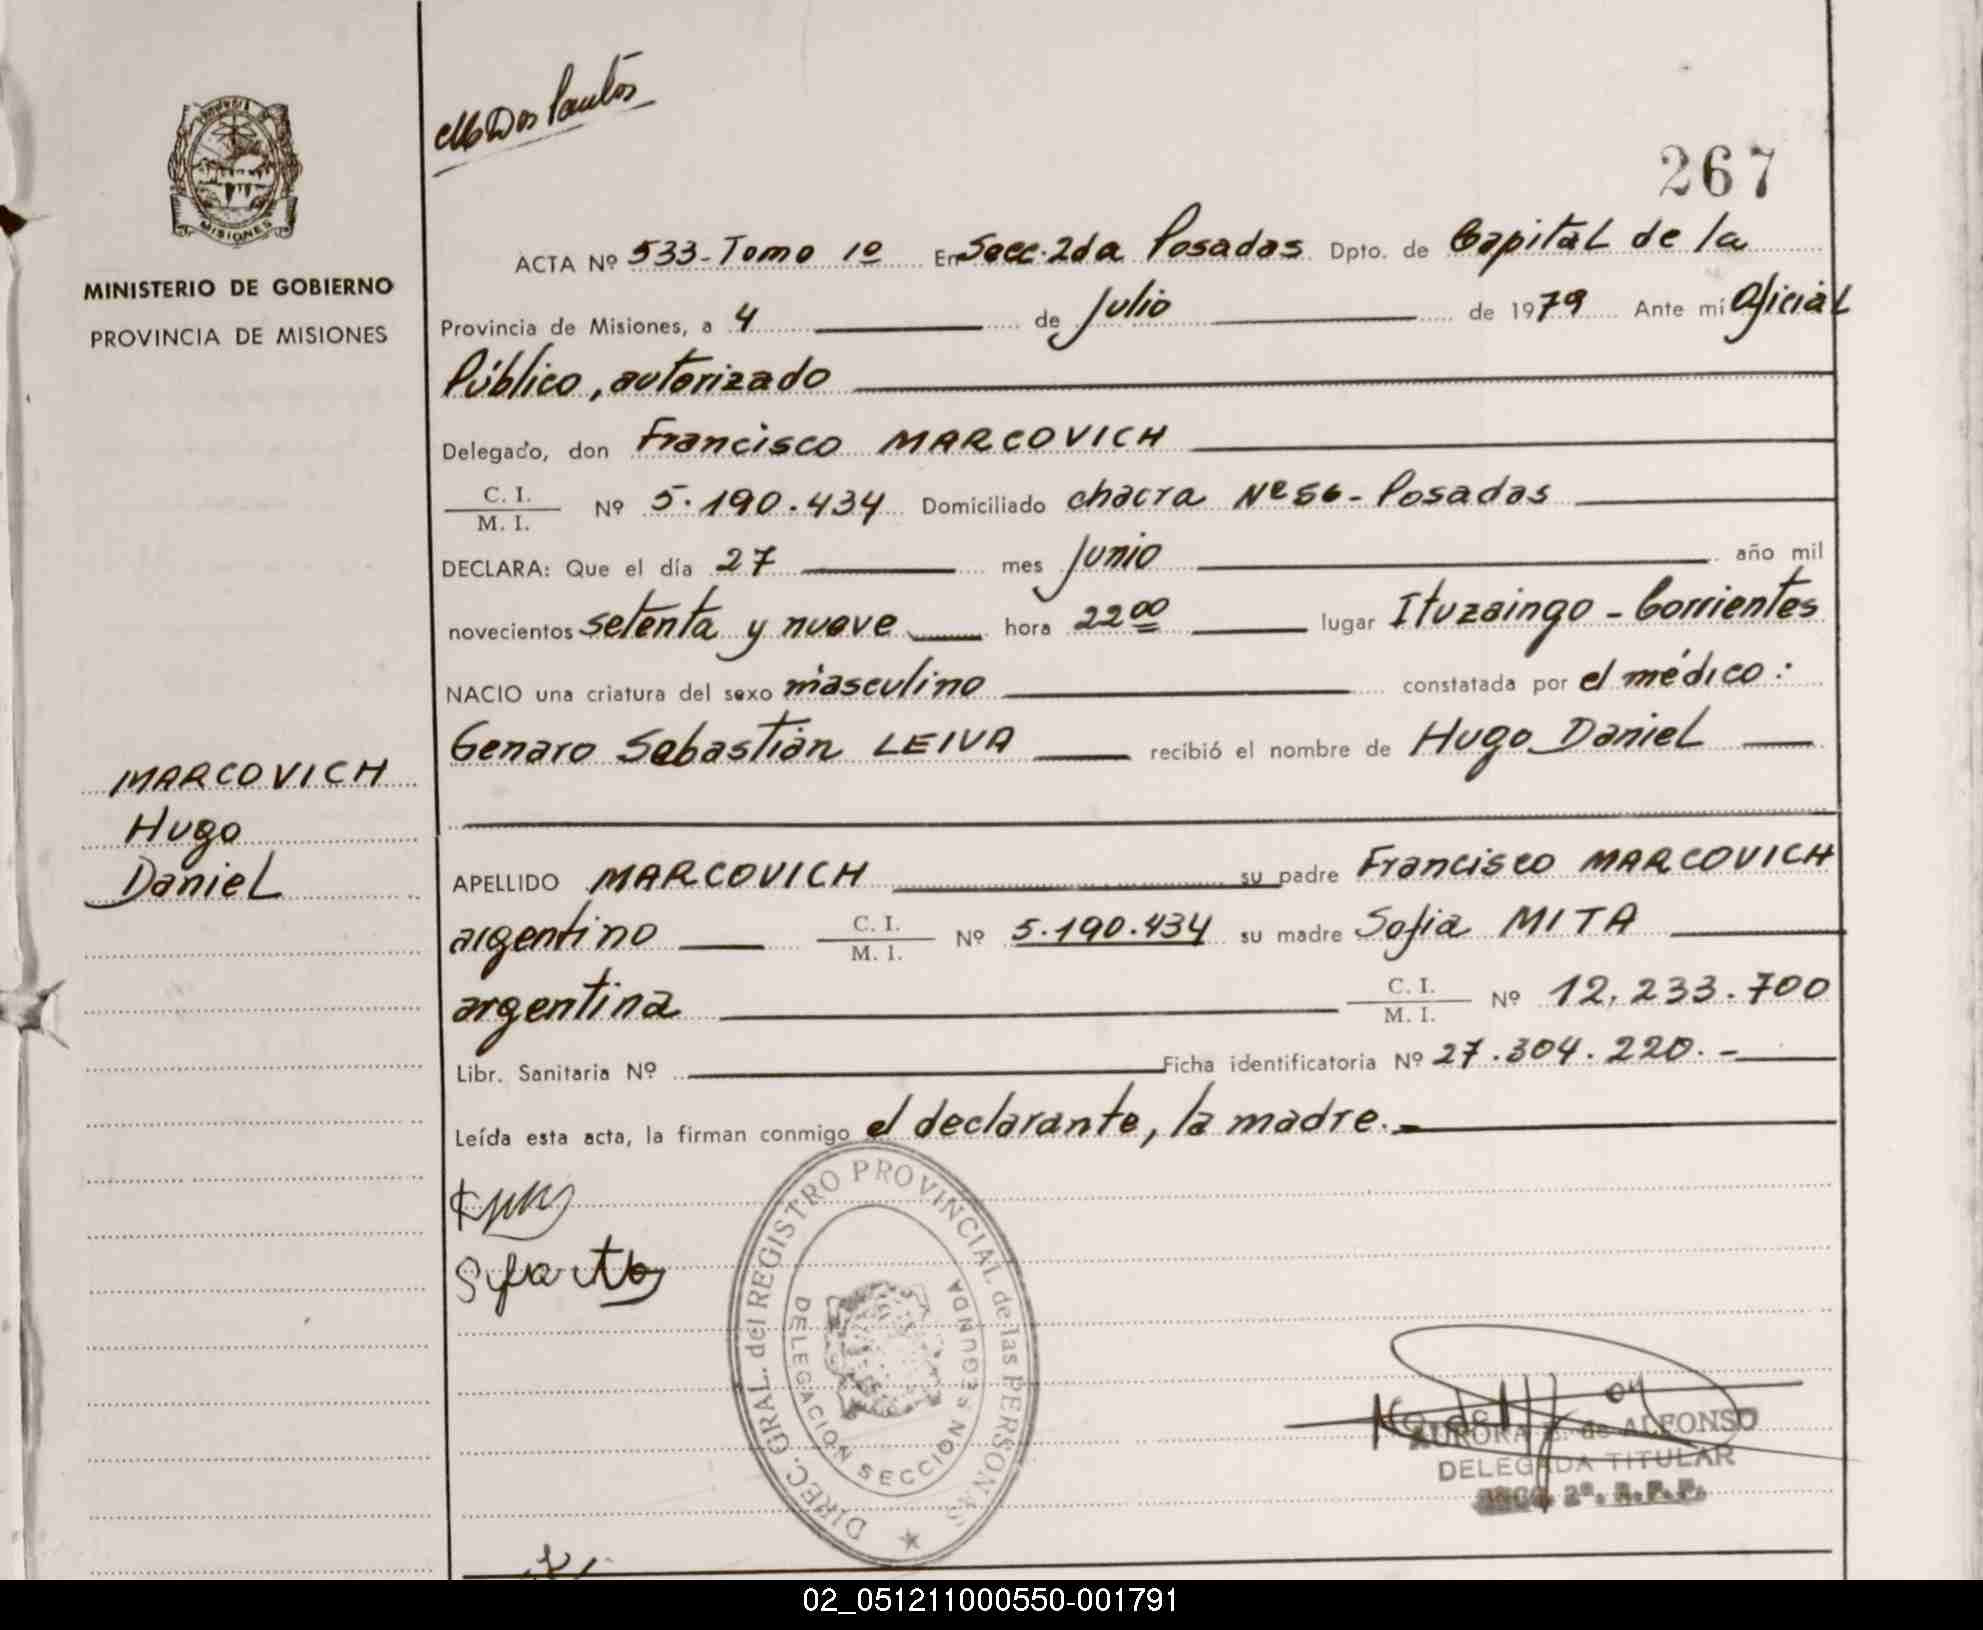 267
ACTA Nº 533-Tomo 1º En Secc. 2da Posadas Dpto. de Capital de la
MINISTERIO DE GOBIERNO
PROVINCIA DE MISIONES
Provincia de Misiones, a 4 de Julio de 1979 Ante mí Oficial
Público, autorizado
Delegado, don Francisco MARCOVICH
C. I. / M. I. Nº 5.190.434 Domiciliado chacra Nº 56 - Posadas
DECLARA: Que el día 27 mes Junio año mil
novecientos setenta y nueve hora 22 00 lugar Ituzaingo - Corrientes
NACIO una criatura del sexo masculino constatada por el médico:
Genaro Sebastián LEIVA recibió el nombre de Hugo Daniel
MARCOVICH
Hugo
Daniel
APELLIDO MARCOVICH su padre Francisco MARCOVICH
argentino C. I. / M. I. Nº 5.190.434 su madre Sofia MITA
argentina C. I. / M. I. Nº 12.233.700
Libr. Sanitaria Nº Ficha identificatoria Nº 27.304.220.-
Leída esta acta, la firman conmigo el declarante, la madre.-
DIREC. GRAL. del REGISTRO PROVINCIAL de las PERSONAS
DELEGACION SECCION SEGUNDA
MISIONES
AURORA de ALFONSO
DELEGADA TITULAR
02_051211000550-001791